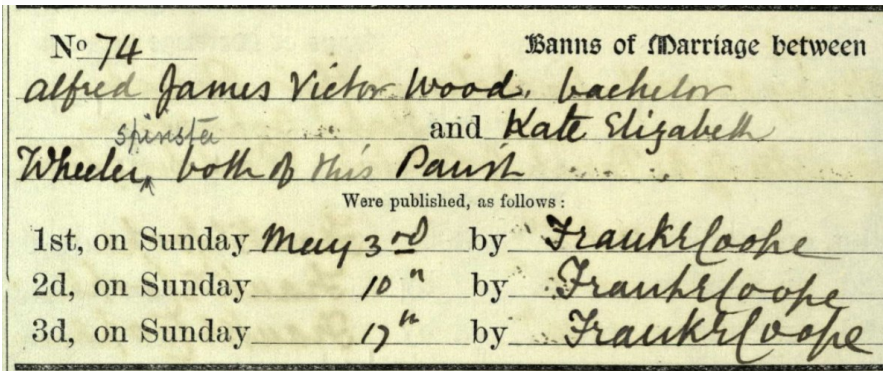 No 74 Banns of Marriage between
Alfred James Victor Wood, bachelor
and Kate Elizabeth
spinster
Wheeler, both of this Parish
Were published, as follows:
1st, on Sunday May 3rd by Frank E Coope
2d, on Sunday 10th by Frank E Coope
3d, on Sunday 17th by Frank E Coope